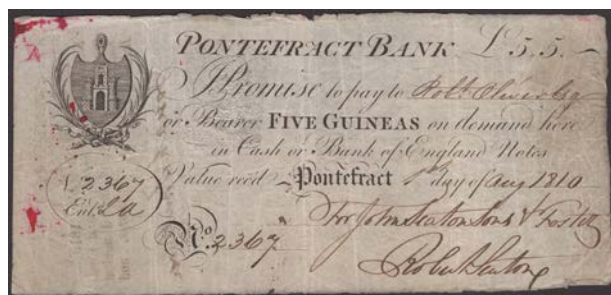 PONTEFRACT BANK £5.5.
I Promise to pay to Robt. Oliver Esq
or Bearer FIVE GUINEAS on demand here
in Cash or Bank of England Notes
Value recd. Pontefract 1st day of Aug 1810
No. 2367
Entd.
For John Seaton Sons & Foster
No. 2367
Robert Seaton